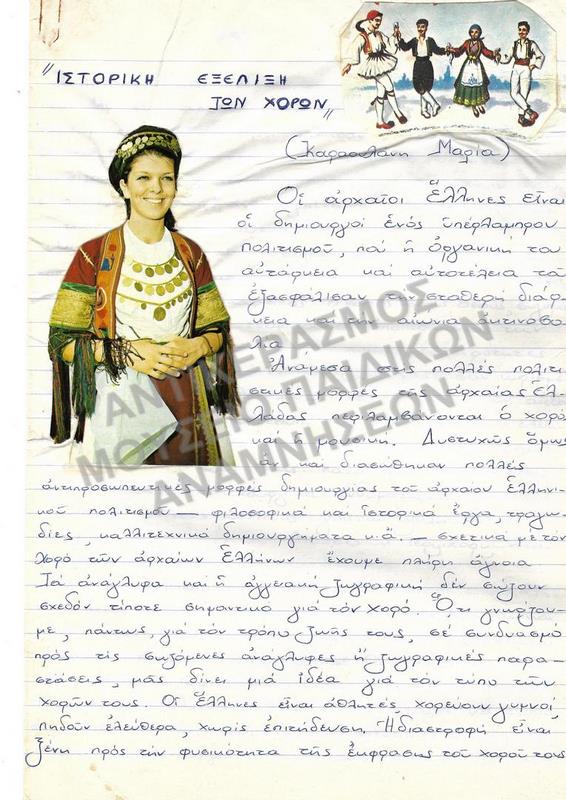 "ΙΣΤΟΡΙΚΗ ΕΞΕΛΙΞΗ
ΤΩΝ ΧΟΡΩΝ"
(Καρασλάνη Μαρία)
Οἱ ἀρχαῖοι Ἕλληνες εἶναι
οἱ δημιουργοί ἑνός ὑπέρλαμπρου
πολιτισμοῦ, πού ἡ ὀργανική του
αὐτάρκεια καί αὐτοτέλεια τοῦ
ἐξασφάλισαν τήν σταθερή διάρ-
κεια καί τήν αἰώνια ἀκτινοβο-
λία
Ἀνάμεσα στίς πολλές πολιτι-
στικές μορφές τῆς ἀρχαίας Ἑλ-
λάδας περιλαμβάνονται ὁ χορός
καί ἡ μουσική. Δυστυχῶς ὅμως
ἄν καί διασώθηκαν πολλές
ἀντιπροσωπευτικές μορφές δημιουργίας τοῦ ἀρχαίου ἑλληνι-
κοῦ πολιτισμοῦ — φιλοσοφικά καί ἱστορικά ἔργα, τραγω-
δίες, καλλιτεχνικά δημιουργήματα κ.ἄ. — σχετικά μέ τόν
χορό τῶν ἀρχαίων Ἑλλήνων ἔχουμε πλήρη ἄγνοια
Τά ἀνάγλυφα καί ἡ ἀγγειακή ζωγραφική δέν σώζουν
σχεδόν τίποτε σημαντικό γιά τόν χορό. Ὅτι γνωρίζου-
με, πάντως, γιά τόν τρόπο ζωῆς τους, σέ συνδυασμό
πρός τίς σωζόμενες ἀνάγλυφες ἤ ζωγραφικές παρα-
στάσεις, μᾶς δίνει μιά ἰδέα γιά τόν τύπο τῶν
χορῶν τους. Οἱ Ἕλληνες εἶναι ἀθλητές, χορεύουν γυμνοί,
πηδοῦν ἐλεύθερα, χωρίς ἐπιτήδευση. Ἡ διαστροφή εἶναι
ξένη πρός τήν φυσικότητα τῆς ἔκφρασης τοῦ χοροῦ τους
ΑΝΤΙΚΕΡΑΣΜΟΣ
ΜΟΥΣΕΙΟ ΠΑΙΔΙΚΩΝ
ΑΝΑΜΝΗΣΕΩΝ